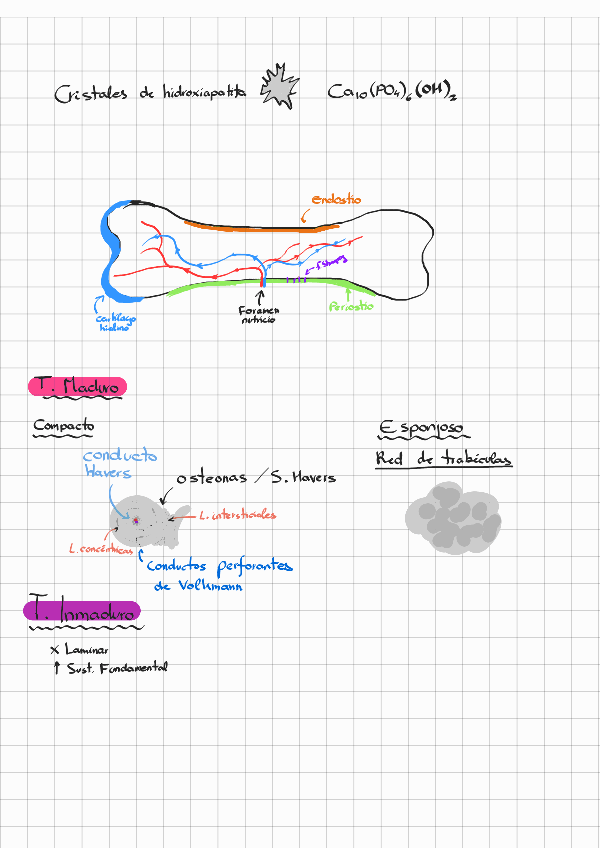 Cristales de hidroxiapatita Ca₁₀(PO₄)₆(OH)₂
endostio
f. sharpey
Cartílago
hialino
Foramen
nutricio
Periostio
T. Maduro
Compacto
Esponjoso
Red de trabéculas
conducto
Havers
osteonas / S. Havers
L. intersticiales
L. concéntricas
Conductos perforantes
de Volkmann
T. Inmaduro
x Laminar
↑ Sust. Fundamental